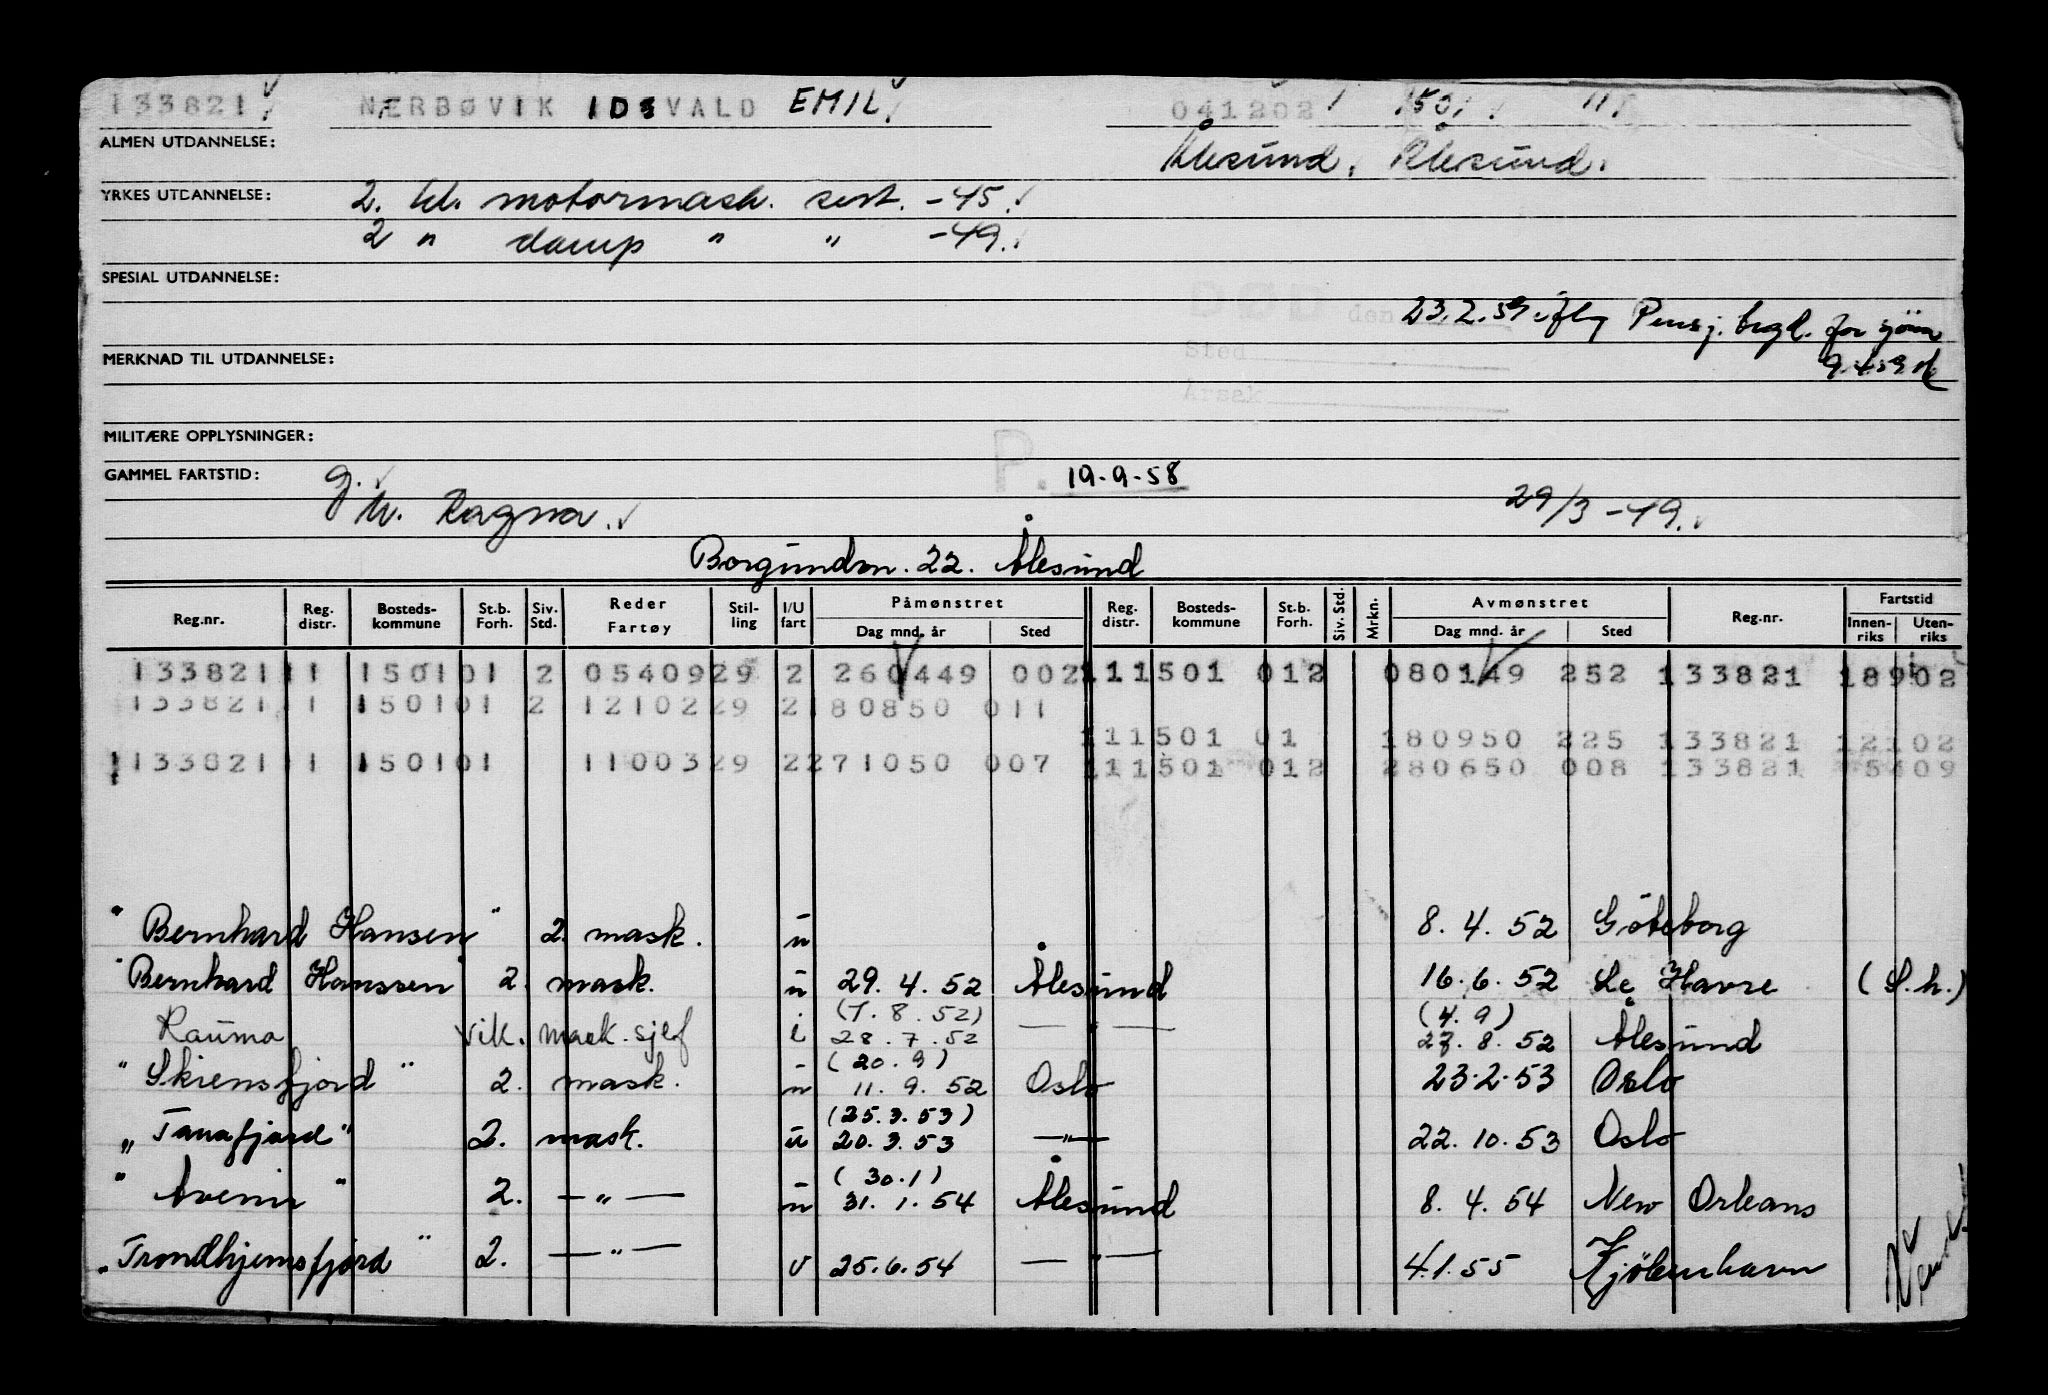 133821 NÆRBØVIK IDSVALD EMIL 041202 1501 11
ALMEN UTDANNELSE: Ålesund. Ålesund.
YRKES UTDANNELSE: 2. kl. motormask. sert. -45.
2 " damp " " -49.
SPESIAL UTDANNELSE:
DØD den 23.2.59 iflg Pensj. begl. for sjöm
Sted
MERKNAD TIL UTDANNELSE: 9.4.59
Årsak
MILITÆRE OPPLYSNINGER:
GAMMEL FARTSTID: g. P. 19-9-58
M. Ragna. 29/3 -49.
Borgundvn. 22. Ålesund
Reg.nr. Reg. distr. Bosteds-kommune St.b. Forh. Siv. Std. Reder Fartøy Stil-ling I/U fart Påmønstret Dag mnd. år Sted Reg. distr. Bosteds-kommune St.b. Forh. Siv. Std. Mrkn. Avmønstret Dag mnd. år Sted Reg.nr. Fartstid Innen-riks Uten-riks
133821 11 1501 01 2 05409 29 2 260449 002 11 1501 012 080149 252 133821 18902
133821 11 1501 01 2 12102 29 2 180850 011
11 1501 01 180950 225 133821 12102
133821 11 1501 01 11003 29 2 271050 007 11 1501 012 280650 008 133821 5409
" Bernhard Hansen " 2. mask. u 8. 4. 52 Göteborg
" Bernhard Hanssen " 2. mask. u 29. 4. 52 Ålesund 16. 6. 52 Le Havre (S.h.)
(7. 8. 52) (4. 9)
Rauma vik. mask. sjef i 28. 7. 52 — " — 27. 8. 52 Ålesund
(20. 9)
" Skiensfjord " 2. mask. u 11. 9. 52 Oslo 23.2.53 Oslo
(25.3.53)
" Tanafjord " 2. mask. u 20. 3. 53 — " — 22. 10. 53 Oslo
(30.1)
" Avenir " 2. — " — u 31. 1. 54 Ålesund 8. 4. 54 New Orleans
" Trondhjemsfjord " 2. — " — u 25. 6. 54 — " — 4.1.55 Kjöbenhavn